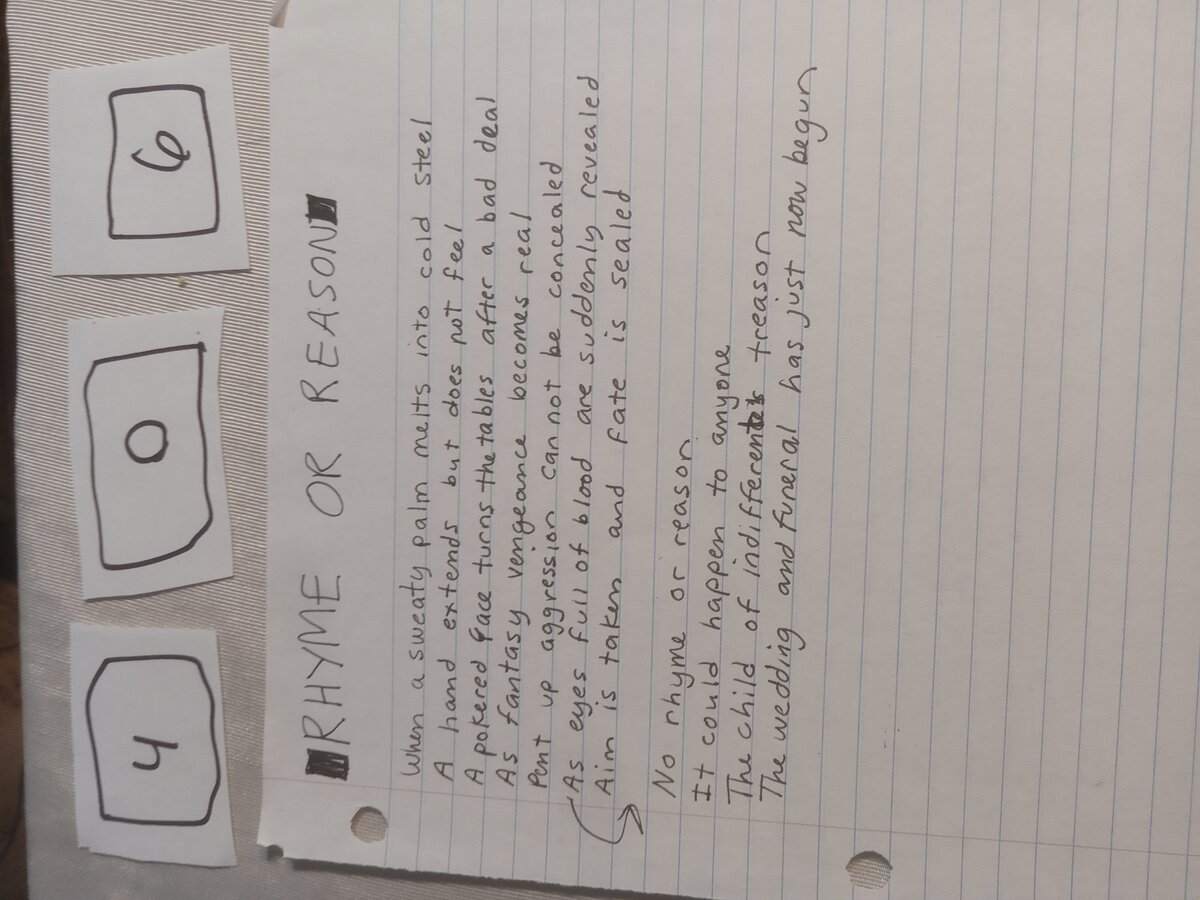 4 0 6
RHYME OR REASON
When a sweaty palm melts into cold steel
A hand extends but does not feel
A pokered face turns the tables after a bad deal
As fantasy vengeance becomes real
Pent up aggression cannot be concealed
As eyes full of blood are suddenly revealed
Aim is taken and fate is sealed
No rhyme or reason
It could happen to anyone
The child of indifferent treason
The wedding and funeral has just now begun